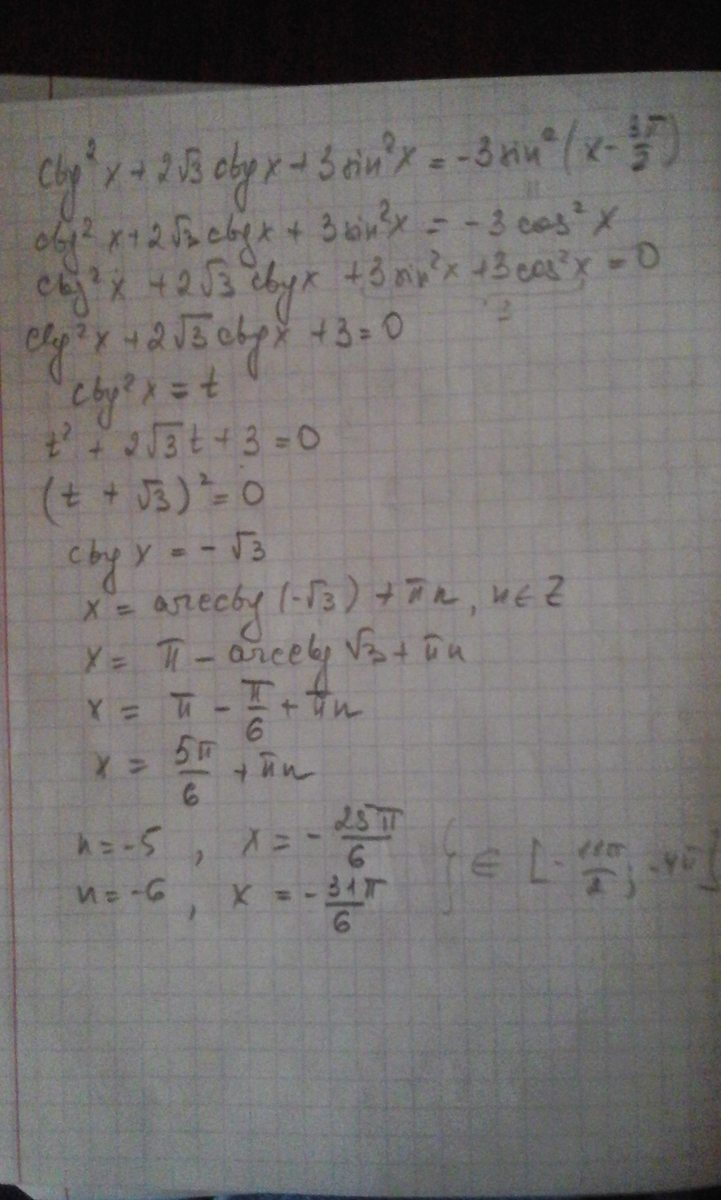 ctg²x + 2√3 ctgx + 3sin²x = -3sin²(x - 3π/2)
ctg²x + 2√3 ctgx + 3sin²x = -3cos²x
ctg²x + 2√3 ctgx + 3sin²x + 3cos²x = 0
3
ctg²x + 2√3 ctgx + 3 = 0
ctg²x = t
t² + 2√3t + 3 = 0
(t + √3)² = 0
ctgx = -√3
x = arcctg(-√3) + πn, n∈Z
x = π - arcctg√3 + πn
x = π - π/6 + πn
x = 5π/6 + πn
n = -5, x = -25π/6
n = -6, x = -31π/6 } ∈ [-11π/2; -4π]